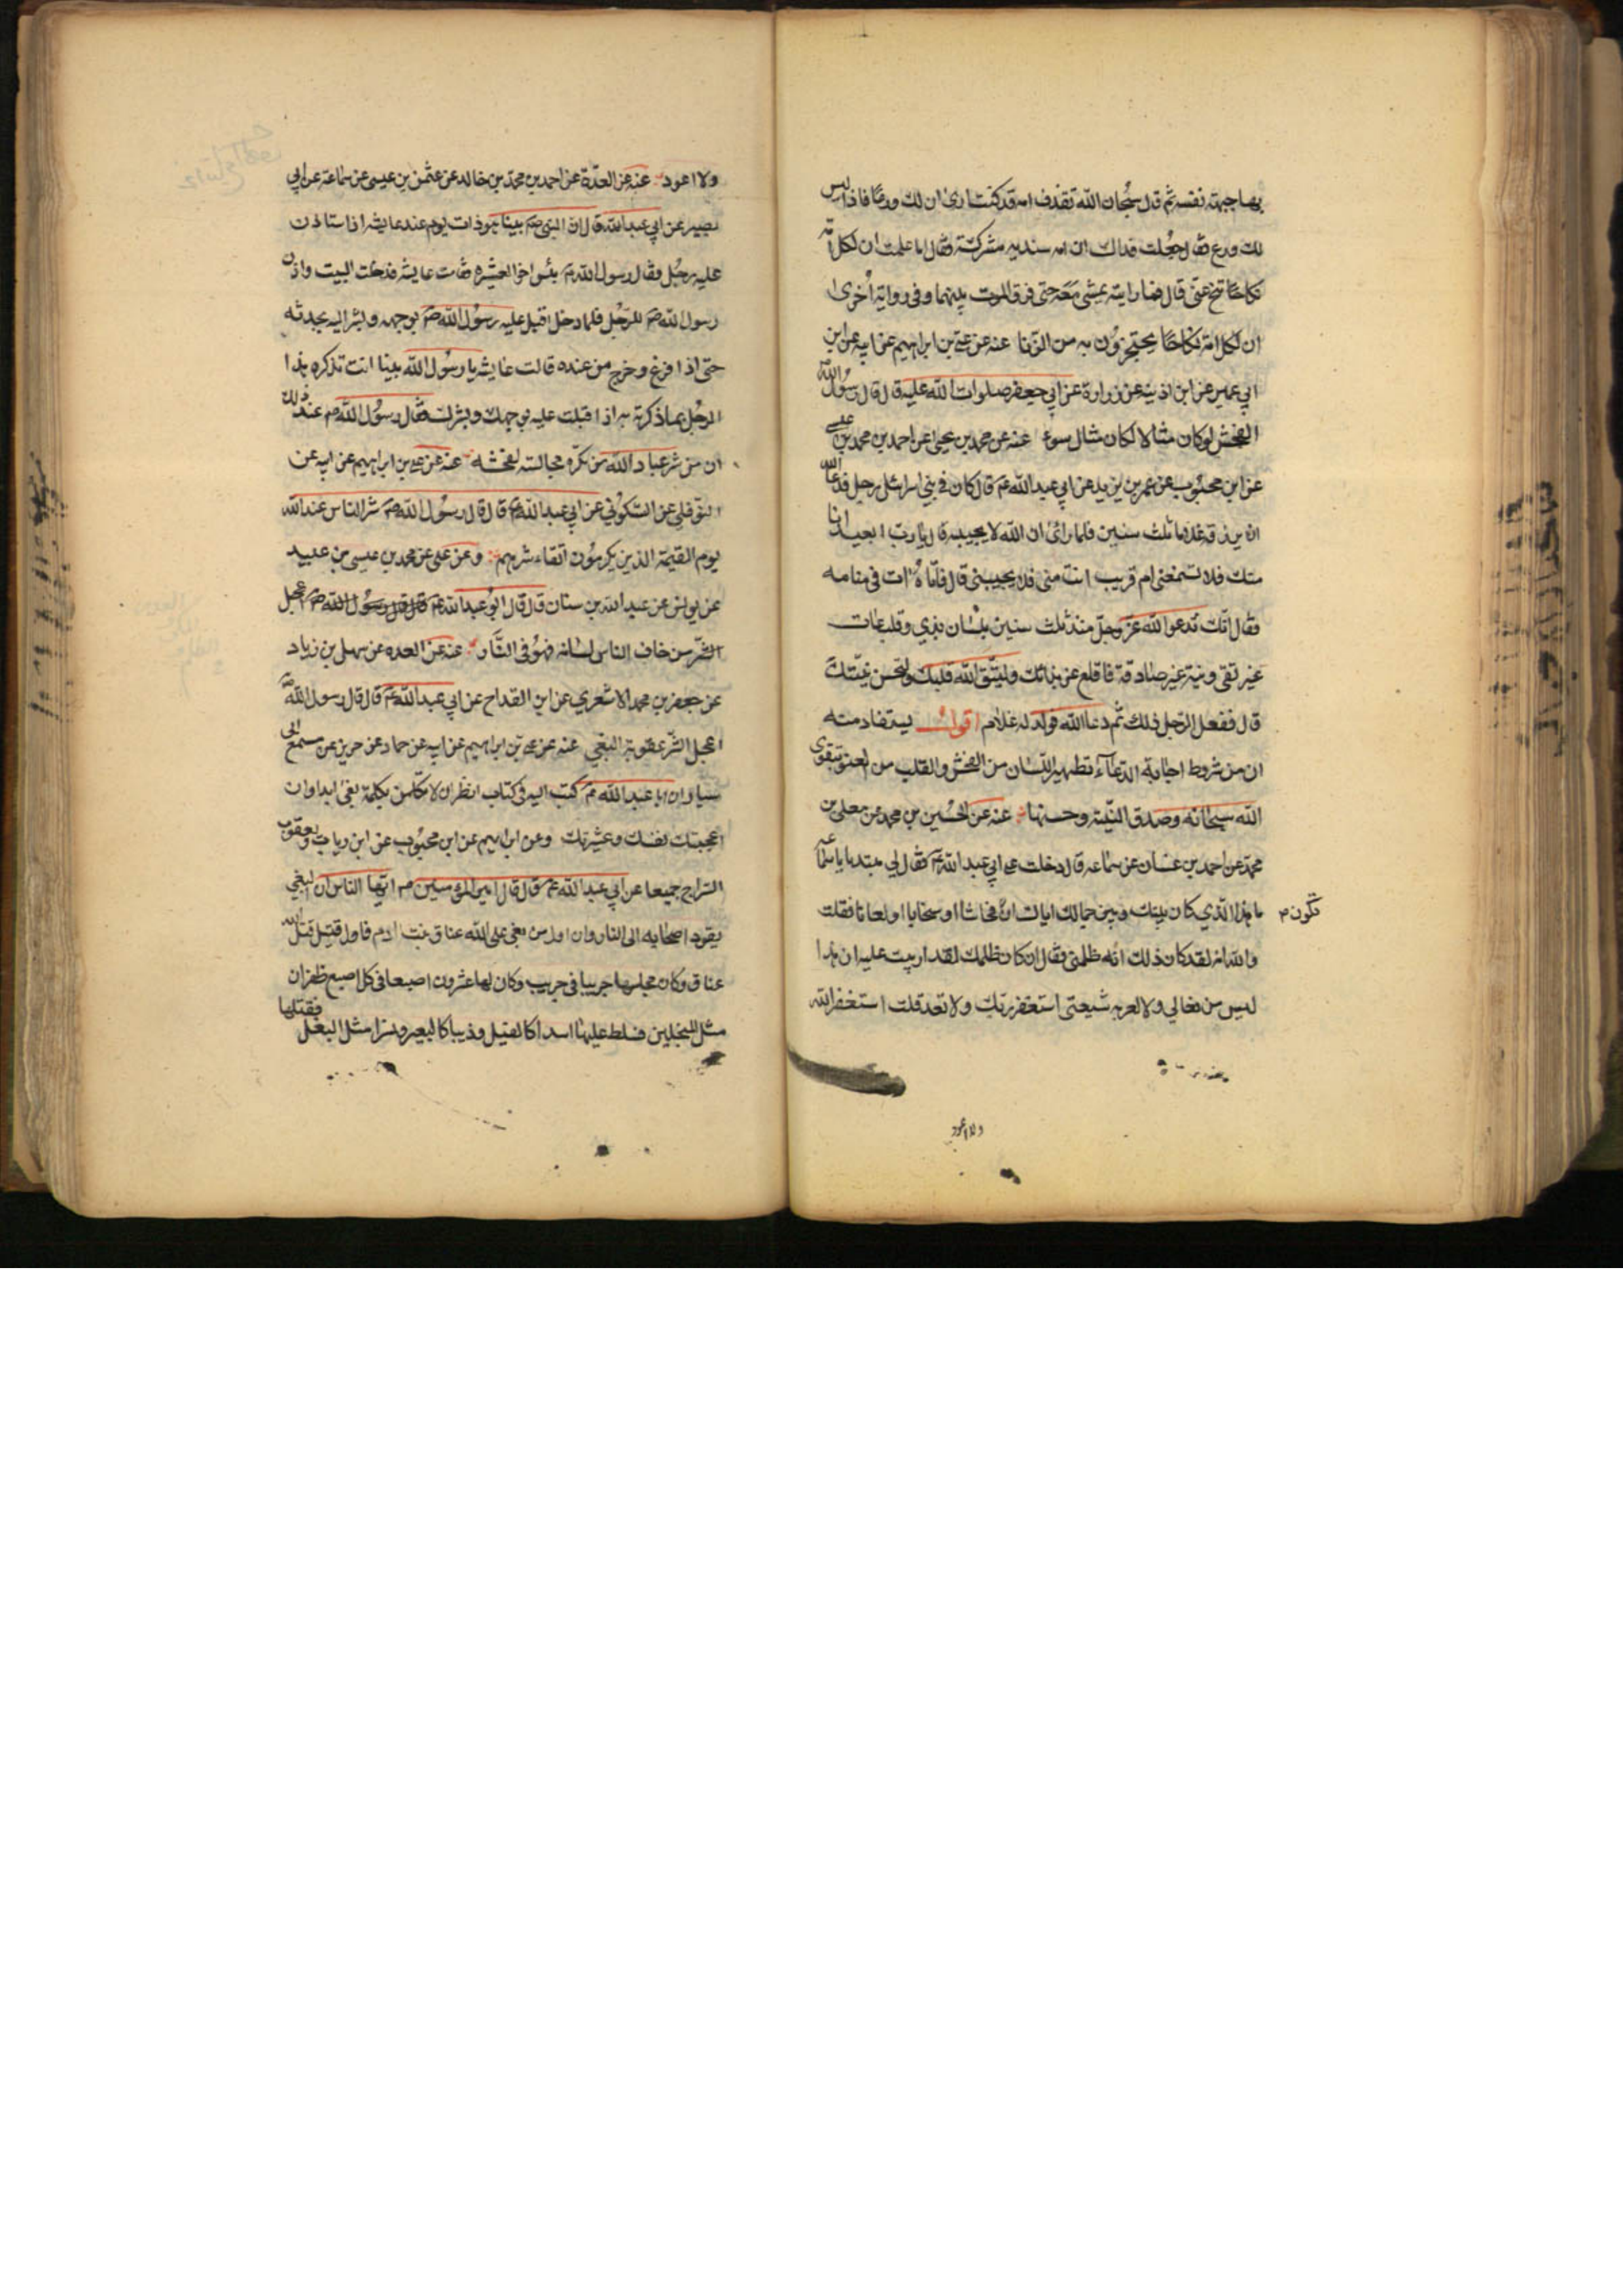 بها جبهة نفسه ثم قال سبحان الله تقذف امه قد كنت ارى ان لك ورعا فاذا ليس
لك ورع فقال جعلت فداك ان امه سنديه مشركة فقال اما علمت ان لكل امة
نكاحا تنح عنى قال فما رايته يمشي معه حتى فرق الموت بينهما وفى رواية اخرى
ان لكل امة نكاحا يحتجزون به من الزنا عنه عن علي بن ابراهيم عن ابيه عن ابن
ابي عمير عن ابن اذينه عن زرارة عن ابي جعفر صلوات الله عليه قال قال رسول الله
الفحش لو كان مثالا لكان مثال سوء عنه عن محمد بن يحيى عن احمد بن محمد بن عيسى
عن ابن محبوب عن عمر بن يزيد عن ابي عبد الله عم قال كان في بني اسرائيل رجل فدعا الله
ان يرزقه غلاما ثلث سنين فلما راى ان الله لا يجيبه قال يا رب ابعيد انا
منك فلا تسمعنى ام قريب انت منى فلا يجيبنى قال فاتاه ات فى منامه
فقال انك تدعو الله عز وجل منذ ثلث سنين بلسان بذي وقلب عات
غير تقى ونية غير صادقة فاقلع عن بذائك وليتق الله قلبك ولتحسن نيتك
قال ففعل الرجل ذلك ثم دعا الله فولد له غلام اقول يستفاد منه
ان من شروط اجابة الدعاء تطهير اللسان من الفحش والقلب من العتو بتقوى
الله سبحانه وصدق النية وحسنها عنه عن الحسين بن محمد عن معلى بن
محمد عن احمد بن غسان عن سماعه قال دخلت على ابي عبد الله عم فقال لي مبتدئا يا سماعه
ما هذا الذي كان بينك وبين جمالك اياك ان فحاشا او سخابا او لعانا فقلت
تكون م
والله انه لقد كان ذلك انه ظلمنى فقال ان كان ظلمك لقد اربيت عليه ان هذا
ليس من فعالي ولا امر به شيعتى استغفر ربك ولا تعد قلت استغفر الله
ولا اعود
ولا اعود عنه عن العدة عن احمد بن محمد بن خالد عن عثمن بن عيسى عن سماعة عن ابي
بصير عن ابي عبد الله قال ان النبي صم بينا هو ذات يوم عند عايشه اذ استاذن
عليه رجل فقال رسول الله صم بئس اخو العشيره فقامت عايشه فدخلت البيت واذن
رسول الله صم للرجل فلما دخل اقبل عليه رسول الله صم بوجهه وبشر اليه يحدثه
حتى اذا فرغ وخرج من عنده قالت عايشه يا رسول الله بينا انت تذكر هذا
الرجل بما ذكرته به اذ اقبلت عليه بوجهك وبشرك فقال رسول الله صم عند ذلك
ان من شر عباد الله من تكره مجالسته لفحشه عنه عن علي بن ابراهيم عن ابيه عن
النوفلي عن السكوني عن ابي عبد الله عم قال قال رسول الله صم شر الناس عند الله
يوم القيمة الذين يكرمون اتقاء شرهم وعن على عن محمد بن عيسى بن عبيد
عن يونس عن عبد الله بن سنان قال قال ابو عبد الله عم قال قال رسول الله صم اعجل
الشر من خاف الناس لسانه فهو فى النار عنه عن العده عن سهل بن زياد
عن جعفر بن محمد الاشعري عن ابن القداح عن ابي عبد الله عم قال قال رسول الله
اعجل الشر عقوبة البغي عنه عن علي بن ابراهيم عن ابيه عن حماد عن حريز عن مسمع ابى
سيار ان ابا عبد الله عم كتب اليه فى كتاب انظر ان لا تكلمن بكلمة بغي ابدا وان
اعجبتك نفسك وعشيرتك وعن ابراهيم عن ابن محبوب عن ابن رياب ويعقوب
السراج جميعا عن ابي عبد الله عم قال قال امير المؤمنين عم ايها الناس ان البغي
يقود اصحابه الى النار وان اول من بغى على الله عناق بنت ادم فاول قتيل قتله الله
عناق وكان مجلسها جريبا في جريب وكان لها عشرون اصبعا في كل اصبع ظفران
مثل المنجلين فسلط عليها اسدا كالفيل وذيبا كالبعير ونسرا مثل البغل
فقتلها